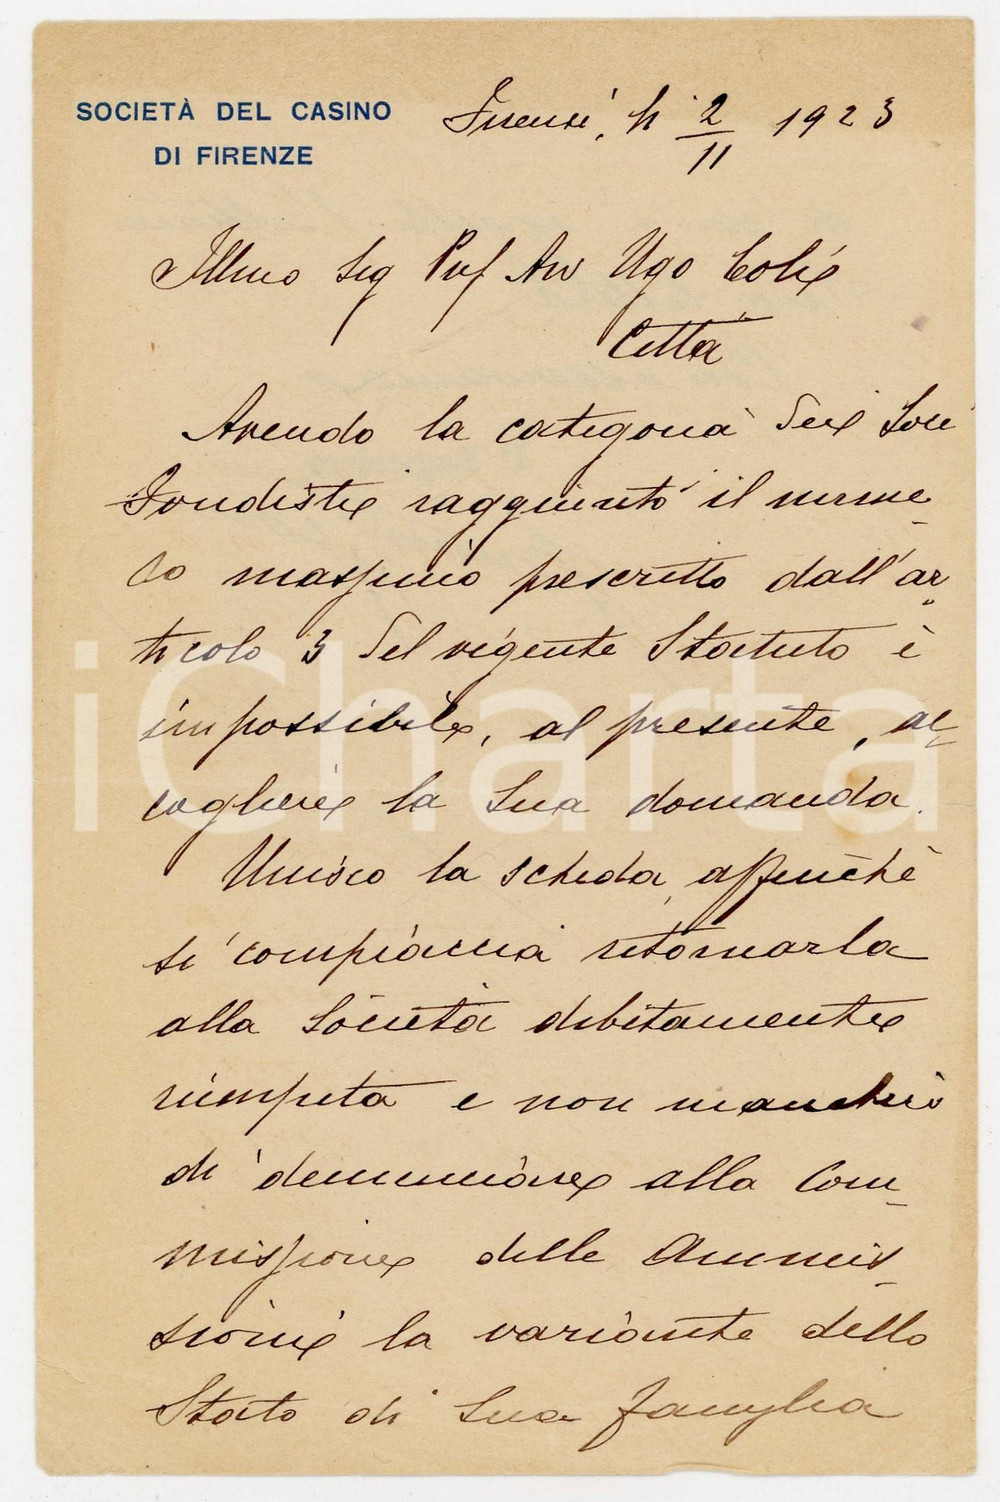 SOCIETÀ DEL CASINO
DI FIRENZE
Firenze, li 2/11 1923
Illmo Sig Prof Avv Ugo
Città
Avendo la categoria dei Soci
Fondisti raggiunto il nume-
ro massimo prescritto dall'ar-
ticolo 3 del vigente Statuto è
impossibile, al presente, ac-
cogliere la Sua domanda.
Unisco la scheda, affinchè
si compiaccia ritornarla
alla Società debitamente
riempita e non mancherò
di denunciare alla Com-
missione delle Ammis-
sioni la variante dello
Stato di Sua famiglia
iCharta